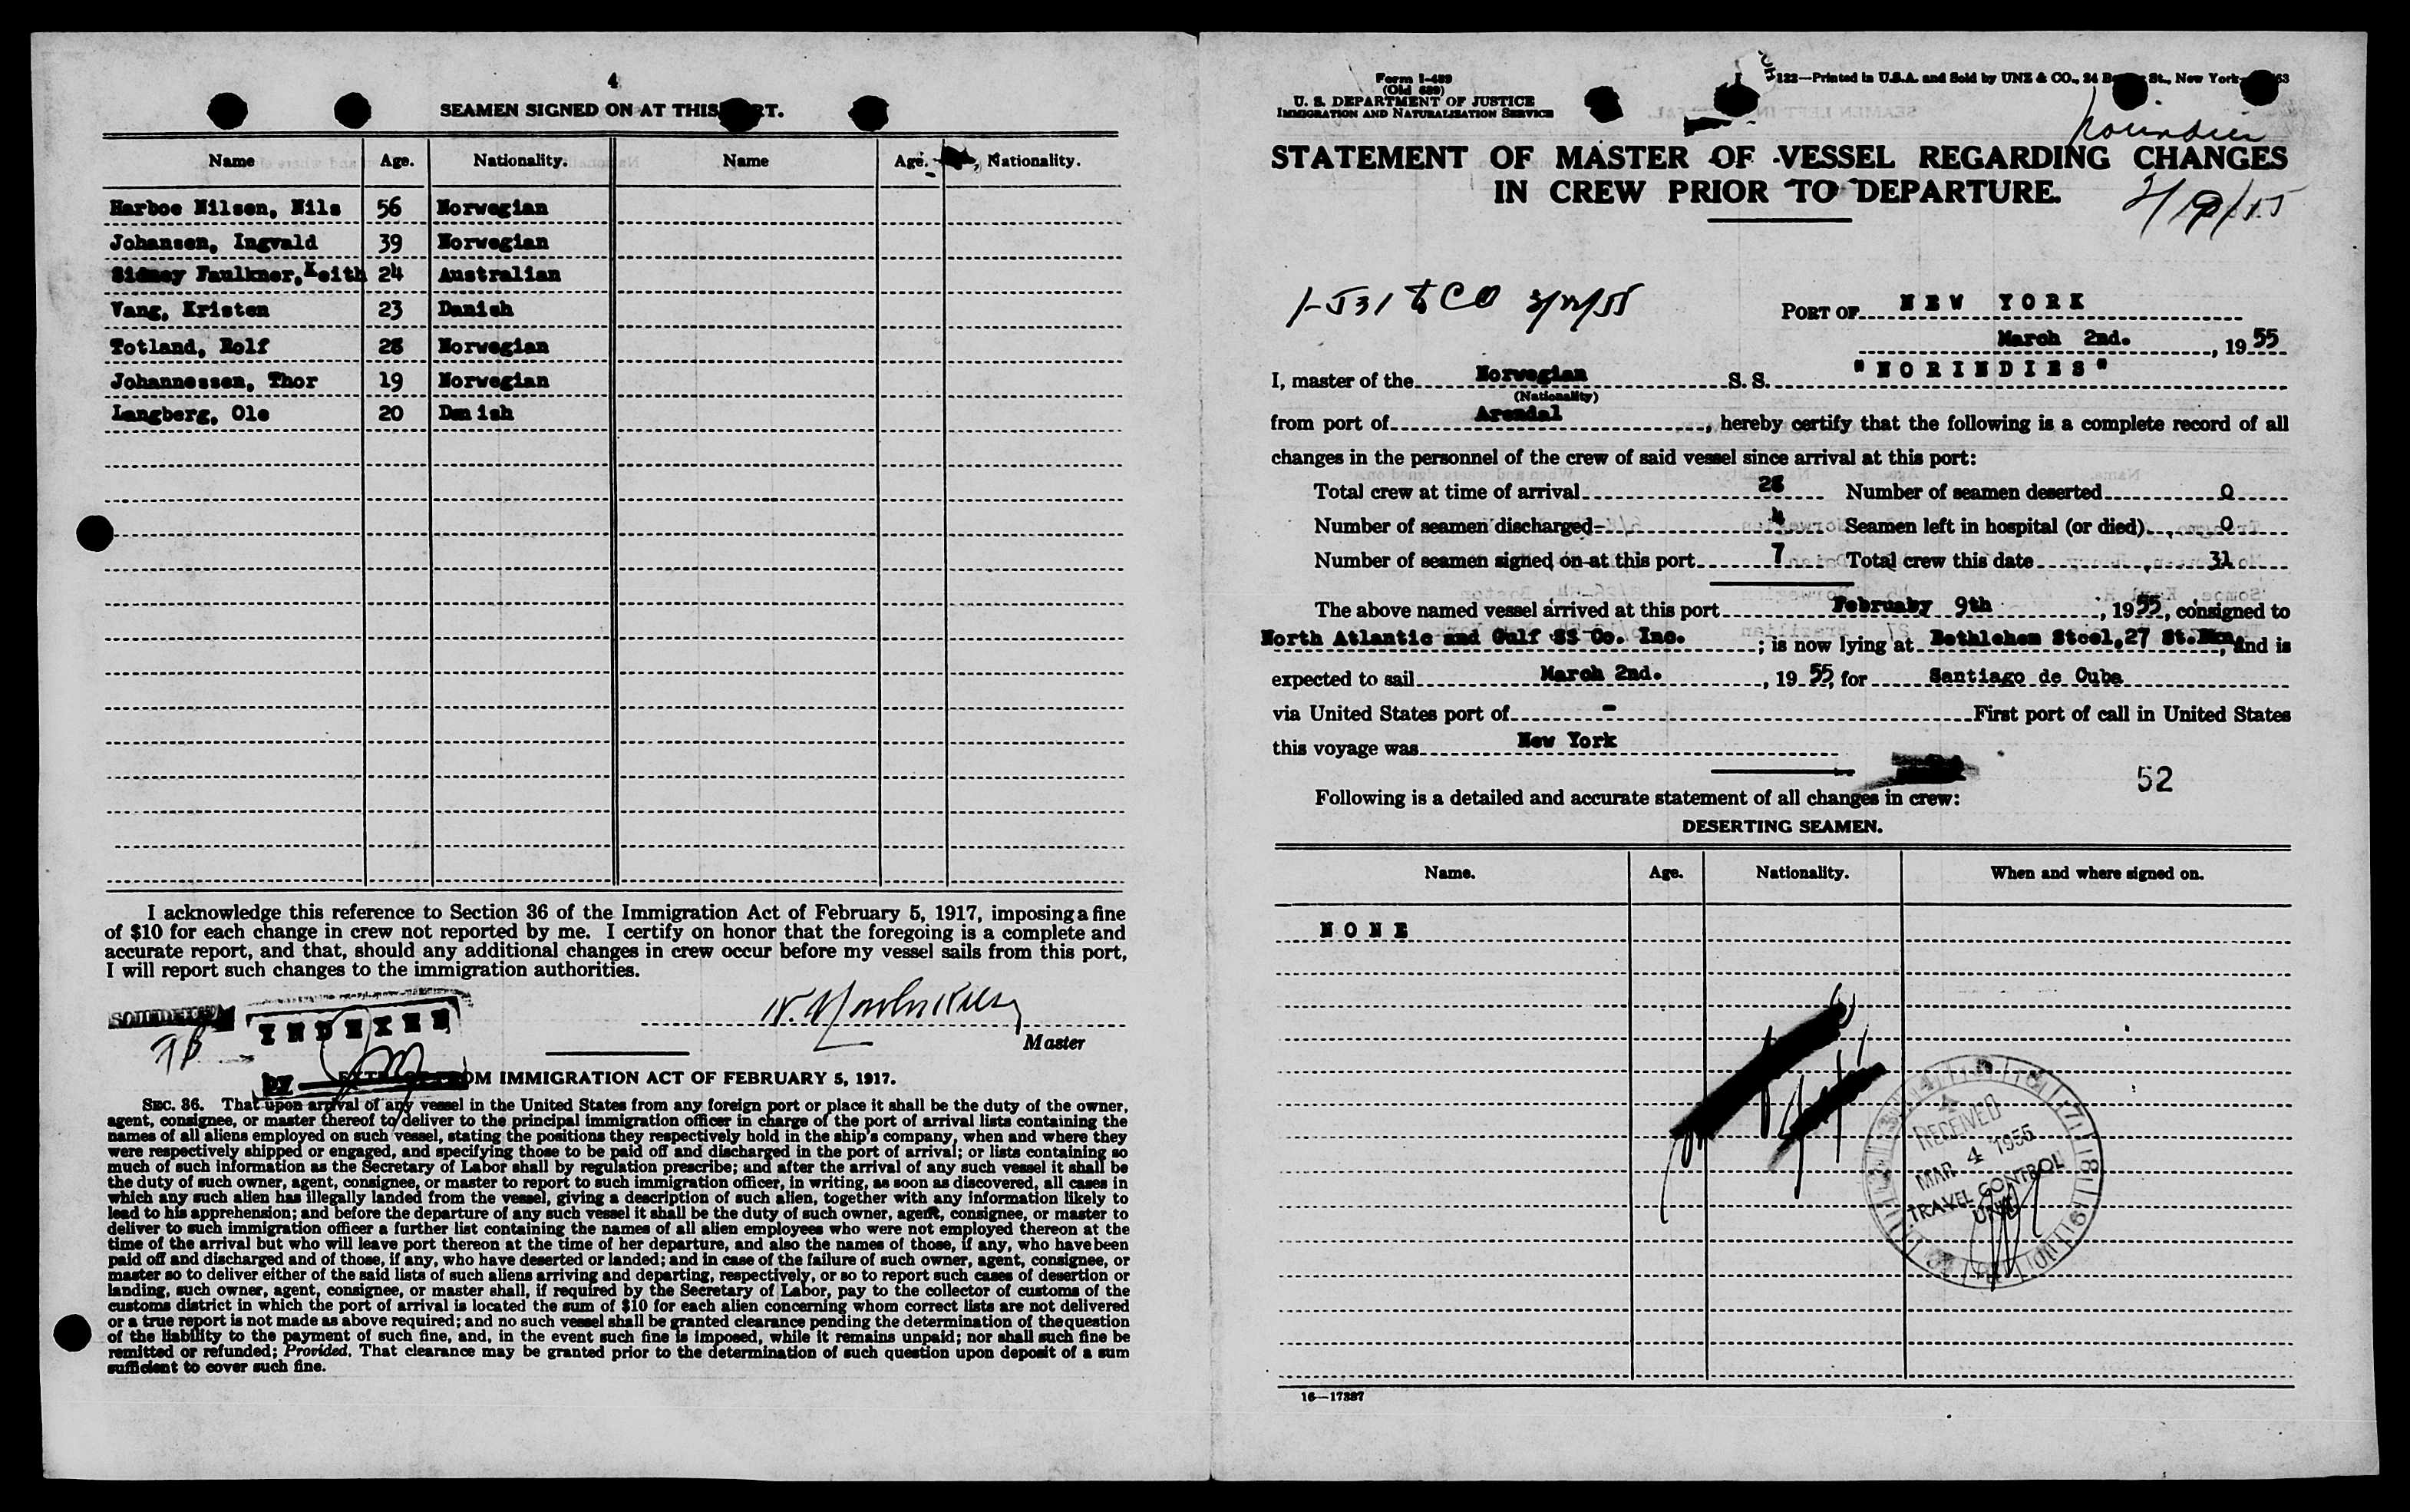 4
SEAMEN SIGNED ON AT THIS
Name Age. Nationality. Name Age. Nationality.
Harboe Nilsen, Nils 56 Norwegian
Johansen, Ingvald 39 Norwegian
Sidney Faulkner, Keith 24 Australian
Vang, Kristen 23 Danish
Totland, Rolf 28 Norwegian
Johannessen, Thor 19 Norwegian
Langberg, Ole 20 Danish
I acknowledge this reference to Section 36 of the Immigration Act of February 5, 1917, imposing a fine
of $10 for each change in crew not reported by me. I certify on honor that the foregoing is a complete and
accurate report, and that, should any additional changes in crew occur before my vessel sails from this port,
I will report such changes to the immigration authorities.
INDEXED
Master
BY
FROM IMMIGRATION ACT OF FEBRUARY 5, 1917.
SEC. 36. That upon arrival of any vessel in the United States from any foreign port or place it shall be the duty of the owner,
agent, consignee, or master thereof to deliver to the principal immigration officer in charge of the port of arrival lists containing the
names of all aliens employed on such vessel, stating the positions they respectively hold in the ship's company, when and where they
were respectively shipped or engaged, and specifying those to be paid off and discharged in the port of arrival; or lists containing so
much of such information as the Secretary of Labor shall by regulation prescribe; and after the arrival of any such vessel it shall be
the duty of such owner, agent, consignee, or master to report to such immigration officer, in writing, as soon as discovered, all cases in
which any such alien has illegally landed from the vessel, giving a description of such alien, together with any information likely to
lead to his apprehension; and before the departure of any such vessel it shall be the duty of such owner, agent, consignee, or master to
deliver to such immigration officer a further list containing the names of all alien employees who were not employed thereon at the
time of the arrival but who will leave port thereon at the time of her departure, and also the names of those, if any, who have been
paid off and discharged and of those, if any, who have deserted or landed; and in case of the failure of such owner, agent, consignee, or
master so to deliver either of the said lists of such aliens arriving and departing, respectively, or so to report such cases of desertion or
landing, such owner, agent, consignee, or master shall, if required by the Secretary of Labor, pay to the collector of customs of the
customs district in which the port of arrival is located the sum of $10 for each alien concerning whom correct lists are not delivered
or a true report is not made as above required; and no such vessel shall be granted clearance pending the determination of the question
of the liability to the payment of such fine, and, in the event such fine is imposed, while it remains unpaid; nor shall such fine be
remitted or refunded; Provided, That clearance may be granted prior to the determination of such question upon deposit of a sum
sufficient to cover such fine.
Form I-489
(Old 689)
U. S. DEPARTMENT OF JUSTICE
IMMIGRATION AND NATURALIZATION SERVICE
122—Printed in U.S.A. and Sold by UNZ & CO., 24 St., New York
Norindies
STATEMENT OF MASTER OF VESSEL REGARDING CHANGES
IN CREW PRIOR TO DEPARTURE.
PORT OF NEW YORK
March 2nd., 1955
I, master of the Norwegian S. S. "NORINDIES"
(Nationality)
from port of Arendal, hereby certify that the following is a complete record of all
changes in the personnel of the crew of said vessel since arrival at this port:
Total crew at time of arrival 28 Number of seamen deserted 0
Number of seamen discharged 4 Seamen left in hospital (or died) 0
Number of seamen signed on at this port 7 Total crew this date 31
The above named vessel arrived at this port Februaby 9th, 1955, consigned to
North Atlantic and Gulf SS Co. Inc.; is now lying at Bethlehem Steel, 27 St. , and is
expected to sail March 2nd., 1955, for Santiago de Cuba
via United States port of - First port of call in United States
this voyage was New York
52
Following is a detailed and accurate statement of all changes in crew:
DESERTING SEAMEN.
Name. Age. Nationality. When and where signed on.
NONE
RECEIVED
MAR 4 1955
TRAVEL CONTROL
UNIT
16—17387